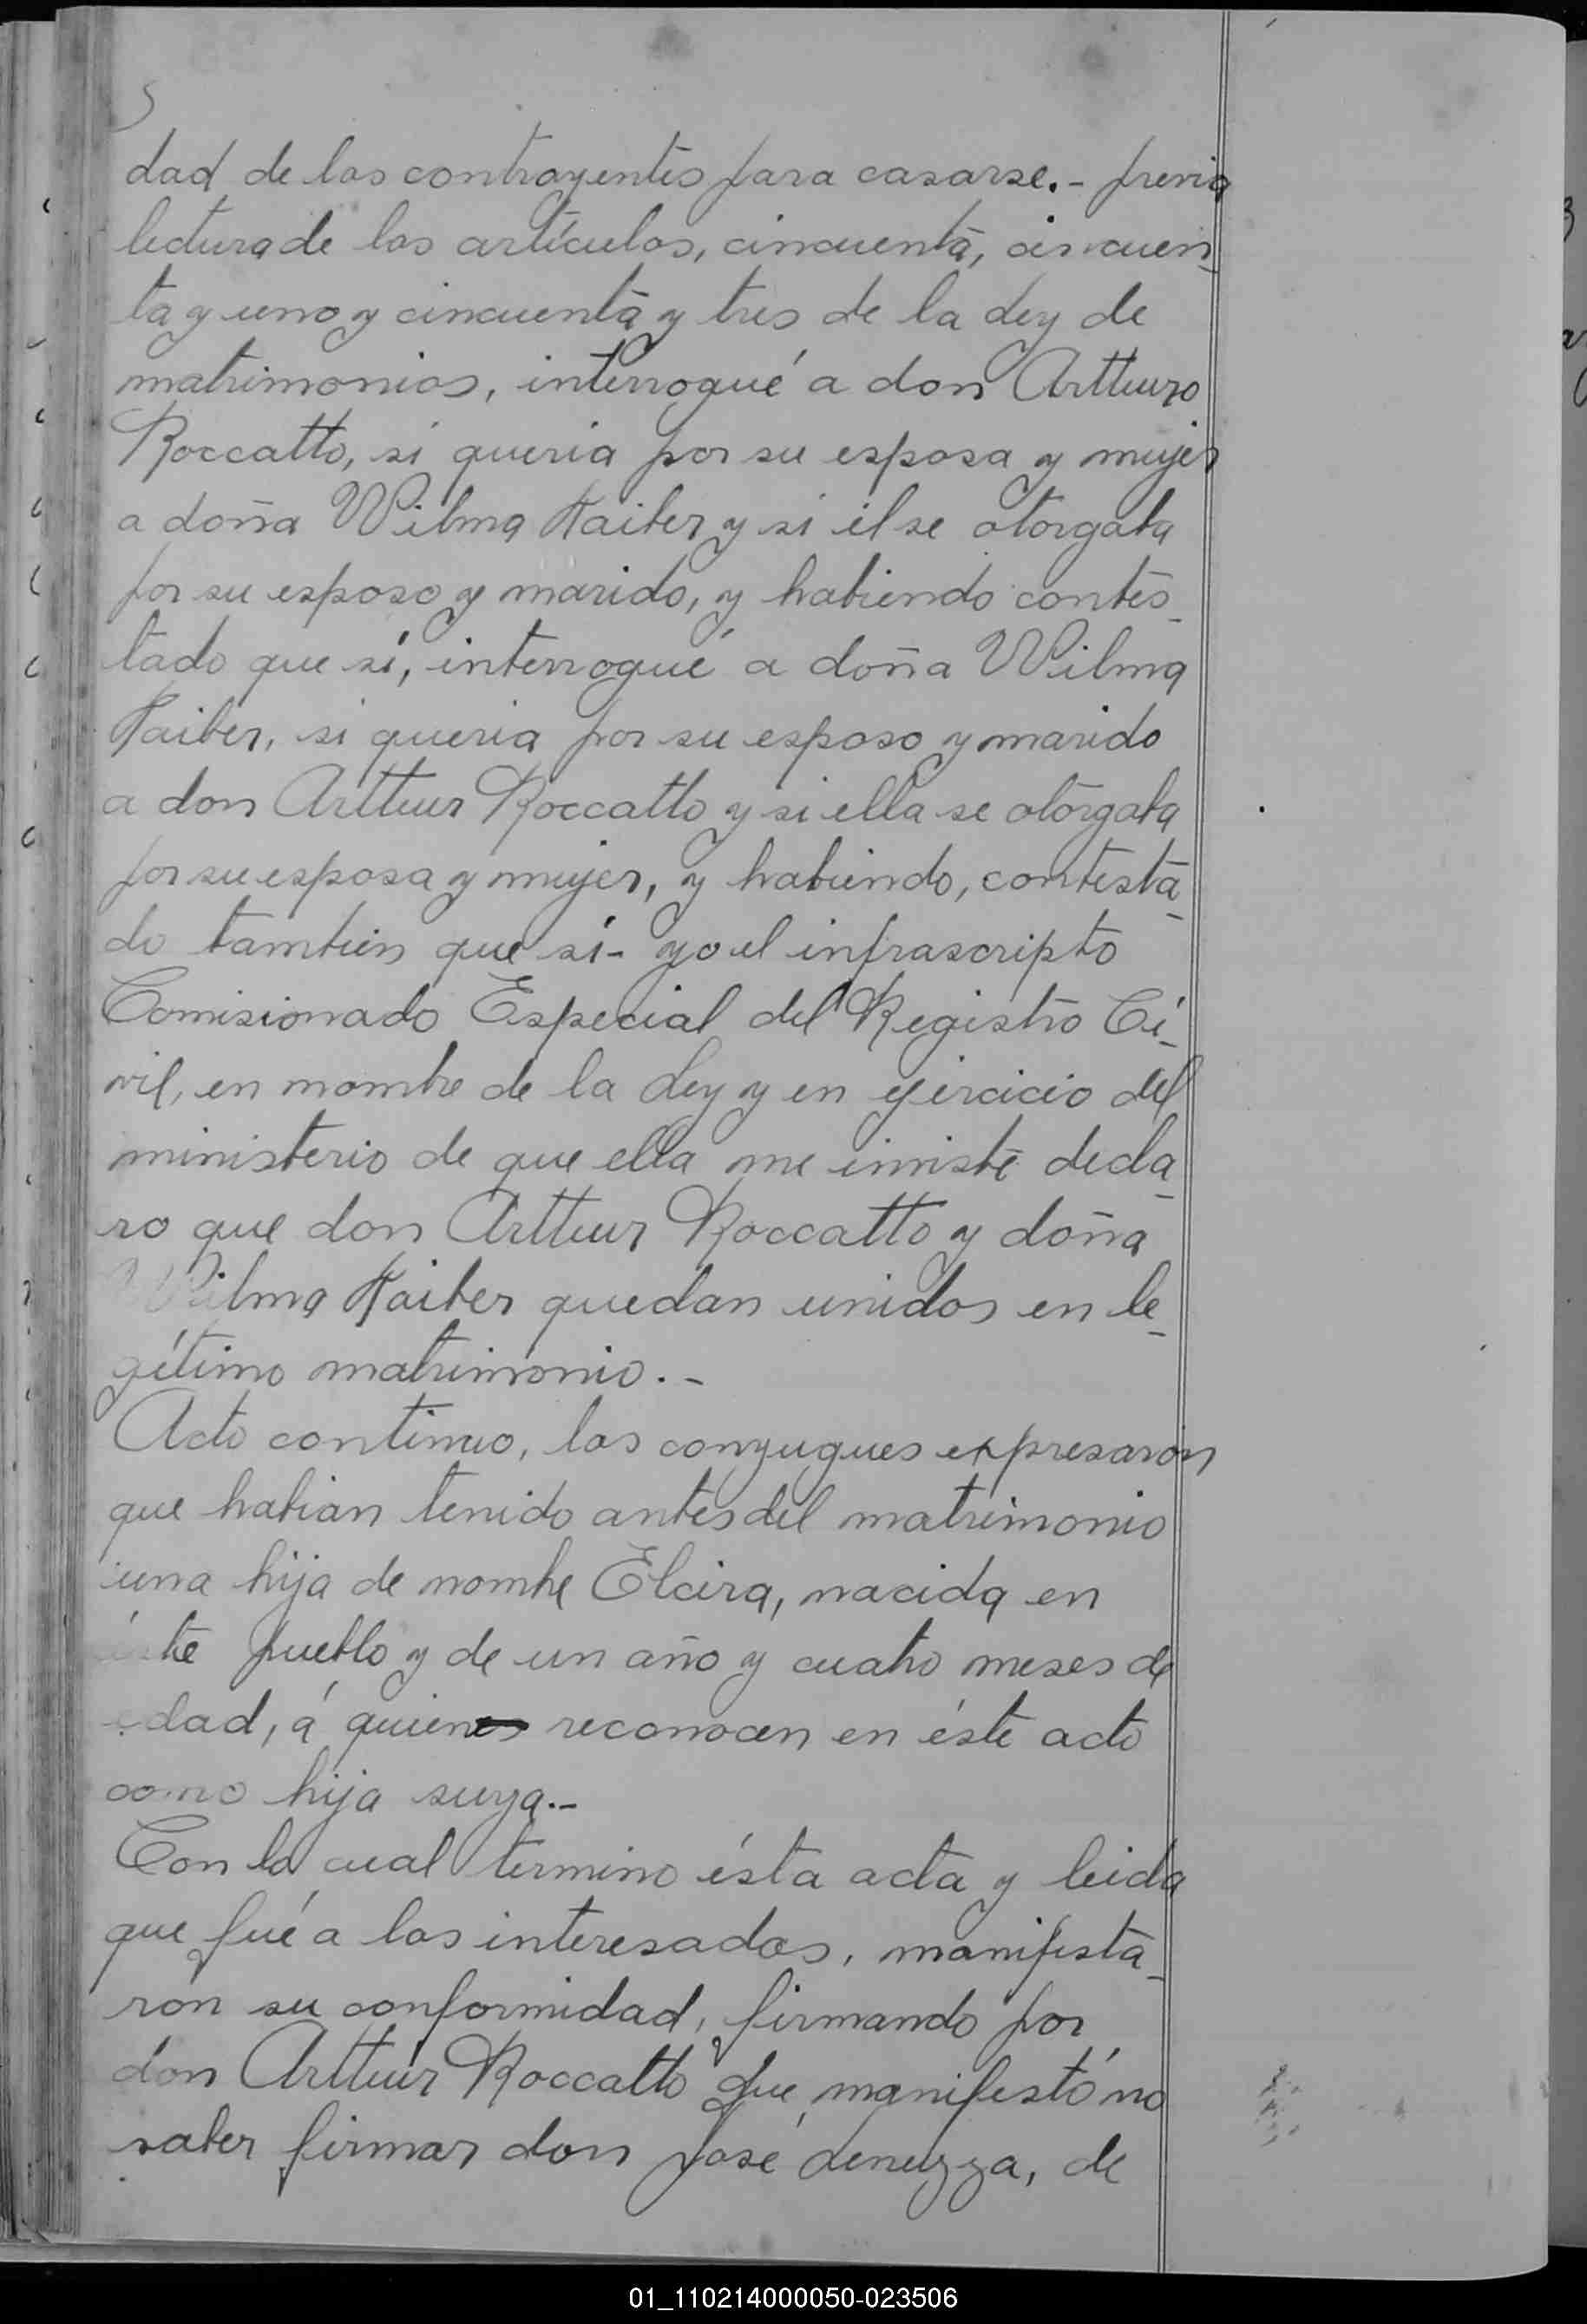 dad de los contrayentes para casarse.- previa
lectura de los artículos, cincuenta, cincuen-
ta y uno y cincuenta y tres de la Ley de
matrimonios, interrogué a don Artturo
Roccatto, si queria por su esposa y mujer
a doña Wilma Haiber y si él se otorgaba
por su esposo y marido, y habiendo contes-
tado que sí, interrogué a doña Wilma
Haiber, si queria por su esposo y marido
a don Arttur Roccatto y si ella se otorgaba
por su esposa y mujer, y habiendo, contesta-
do tambien que sí- yo el infrascripto
Comisionado Especial del Registro Ci-
vil, en nombre de la Ley y en ejercicio del
ministerio de que ella me inviste decla-
ro que don Arttur Roccatto y doña
Wilma Haiber quedan unidos en le-
gítimo matrimonio.-
Acto continuo, los conyugues expresaron
que habian tenido antes del matrimonio
una hija de nombre Elcira, nacida en
éste pueblo y de un año y cuatro meses de
edad, á quienes reconocen en éste acto
como hija suya.-
Con lo cual termino ésta acta y leida
que fué a los interesados, manifesta-
ron su conformidad, firmando por
don Arttur Roccatto que manifestó no
saber firmar don José Lenuzza, de
01_110214000050-023506